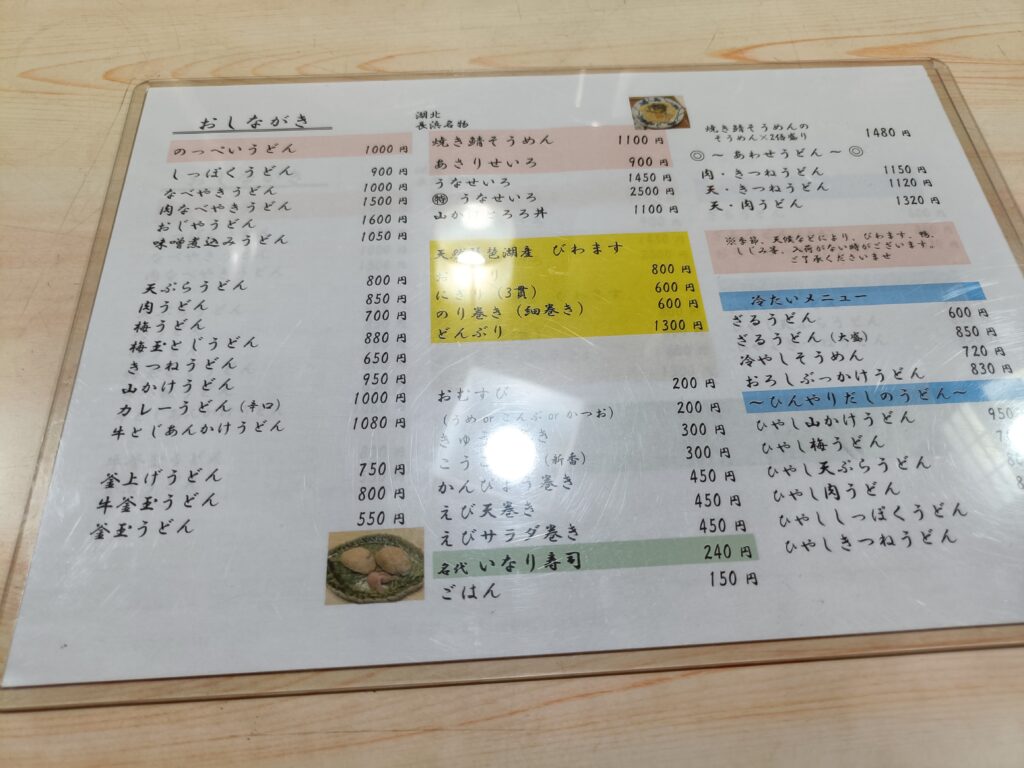 おしながき
のっぺいうどん 1000円
しっぽくうどん 900円
なべやきうどん 1000円
肉なべやきうどん 1500円
おじやうどん 1600円
味噌煮込みうどん 1050円
天ぷらうどん 800円
肉うどん 850円
梅うどん 700円
梅玉とじうどん 880円
きつねうどん 650円
山かけうどん 950円
カレーうどん(辛口) 1000円
牛とじあんかけうどん 1080円
釜上げうどん 750円
牛釜玉うどん 800円
釜玉うどん 550円
湖北
長浜名物
焼き鯖そうめん 1100円
あさりせいろ 900円
うなせいろ 1450円
㊕うなせいろ 2500円
山かけとろろ丼 1100円
天然琵琶湖産 びわます
800円
にぎり(3貫) 600円
のり巻き(細巻き) 600円
どんぶり 1300円
おむすび 200円
(うめorこんぶorかつお) 200円
300円
(新香) 300円
かんぴょう巻き 450円
えび天巻き 450円
えびサラダ巻き 450円
名代 いなり寿司 240円
ごはん 150円
焼き鯖そうめんの
そうめん×2倍盛り 1480円
◎～あわせうどん～◎
肉・きつねうどん 1150円
天・きつねうどん 1120円
天・肉うどん 1320円
※季節、天候などにより、びわます、鴨、
しじみ等、入荷がない時がございます。
ご了承くださいませ
冷たいメニュー
ざるうどん 600円
ざるうどん(大盛) 850円
冷やしそうめん 720円
おろしぶっかけうどん 830円
～ひんやりだしのうどん～
ひやし山かけうどん 950
ひやし梅うどん
ひやし天ぷらうどん
ひやし肉うどん
ひやししっぽくうどん
ひやしきつねうどん